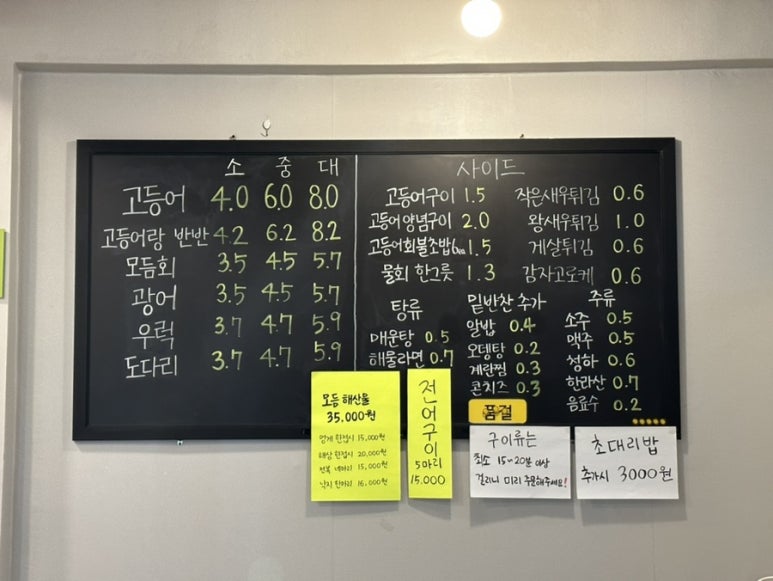 소 중 대
고등어 4.0 6.0 8.0
고등어랑 반반 4.2 6.2 8.2
모듬회 3.5 4.5 5.7
광어 3.5 4.5 5.7
우럭 3.7 4.7 5.9
도다리 3.7 4.7 5.9
사이드
고등어구이 1.5
고등어 양념구이 2.0
고등어회불초밥 1.5
물회 한그릇 1.3
작은새우튀김 0.6
왕새우튀김 1.0
게살튀김 0.6
감자고로케 0.6
탕류
매운탕 0.5
해물라면 0.7
밑반찬 추가
알밥 0.4
오뎅탕 0.2
계란찜 0.3
콘치즈 0.3
주류
소주 0.5
맥주 0.5
청하 0.6
한라산 0.7
음료수 0.2
모듬 해산물
35,000원
멍게 한접시 15,000원
해삼 한접시 20,000원
전복 네마리 15,000원
낙지 한마리 16,000원
전어구이
5마리
15,000
품절
구이류는
최소 15~20분 이상
걸리니 미리 주문해주세요!
초대리밥
추가시 3000원